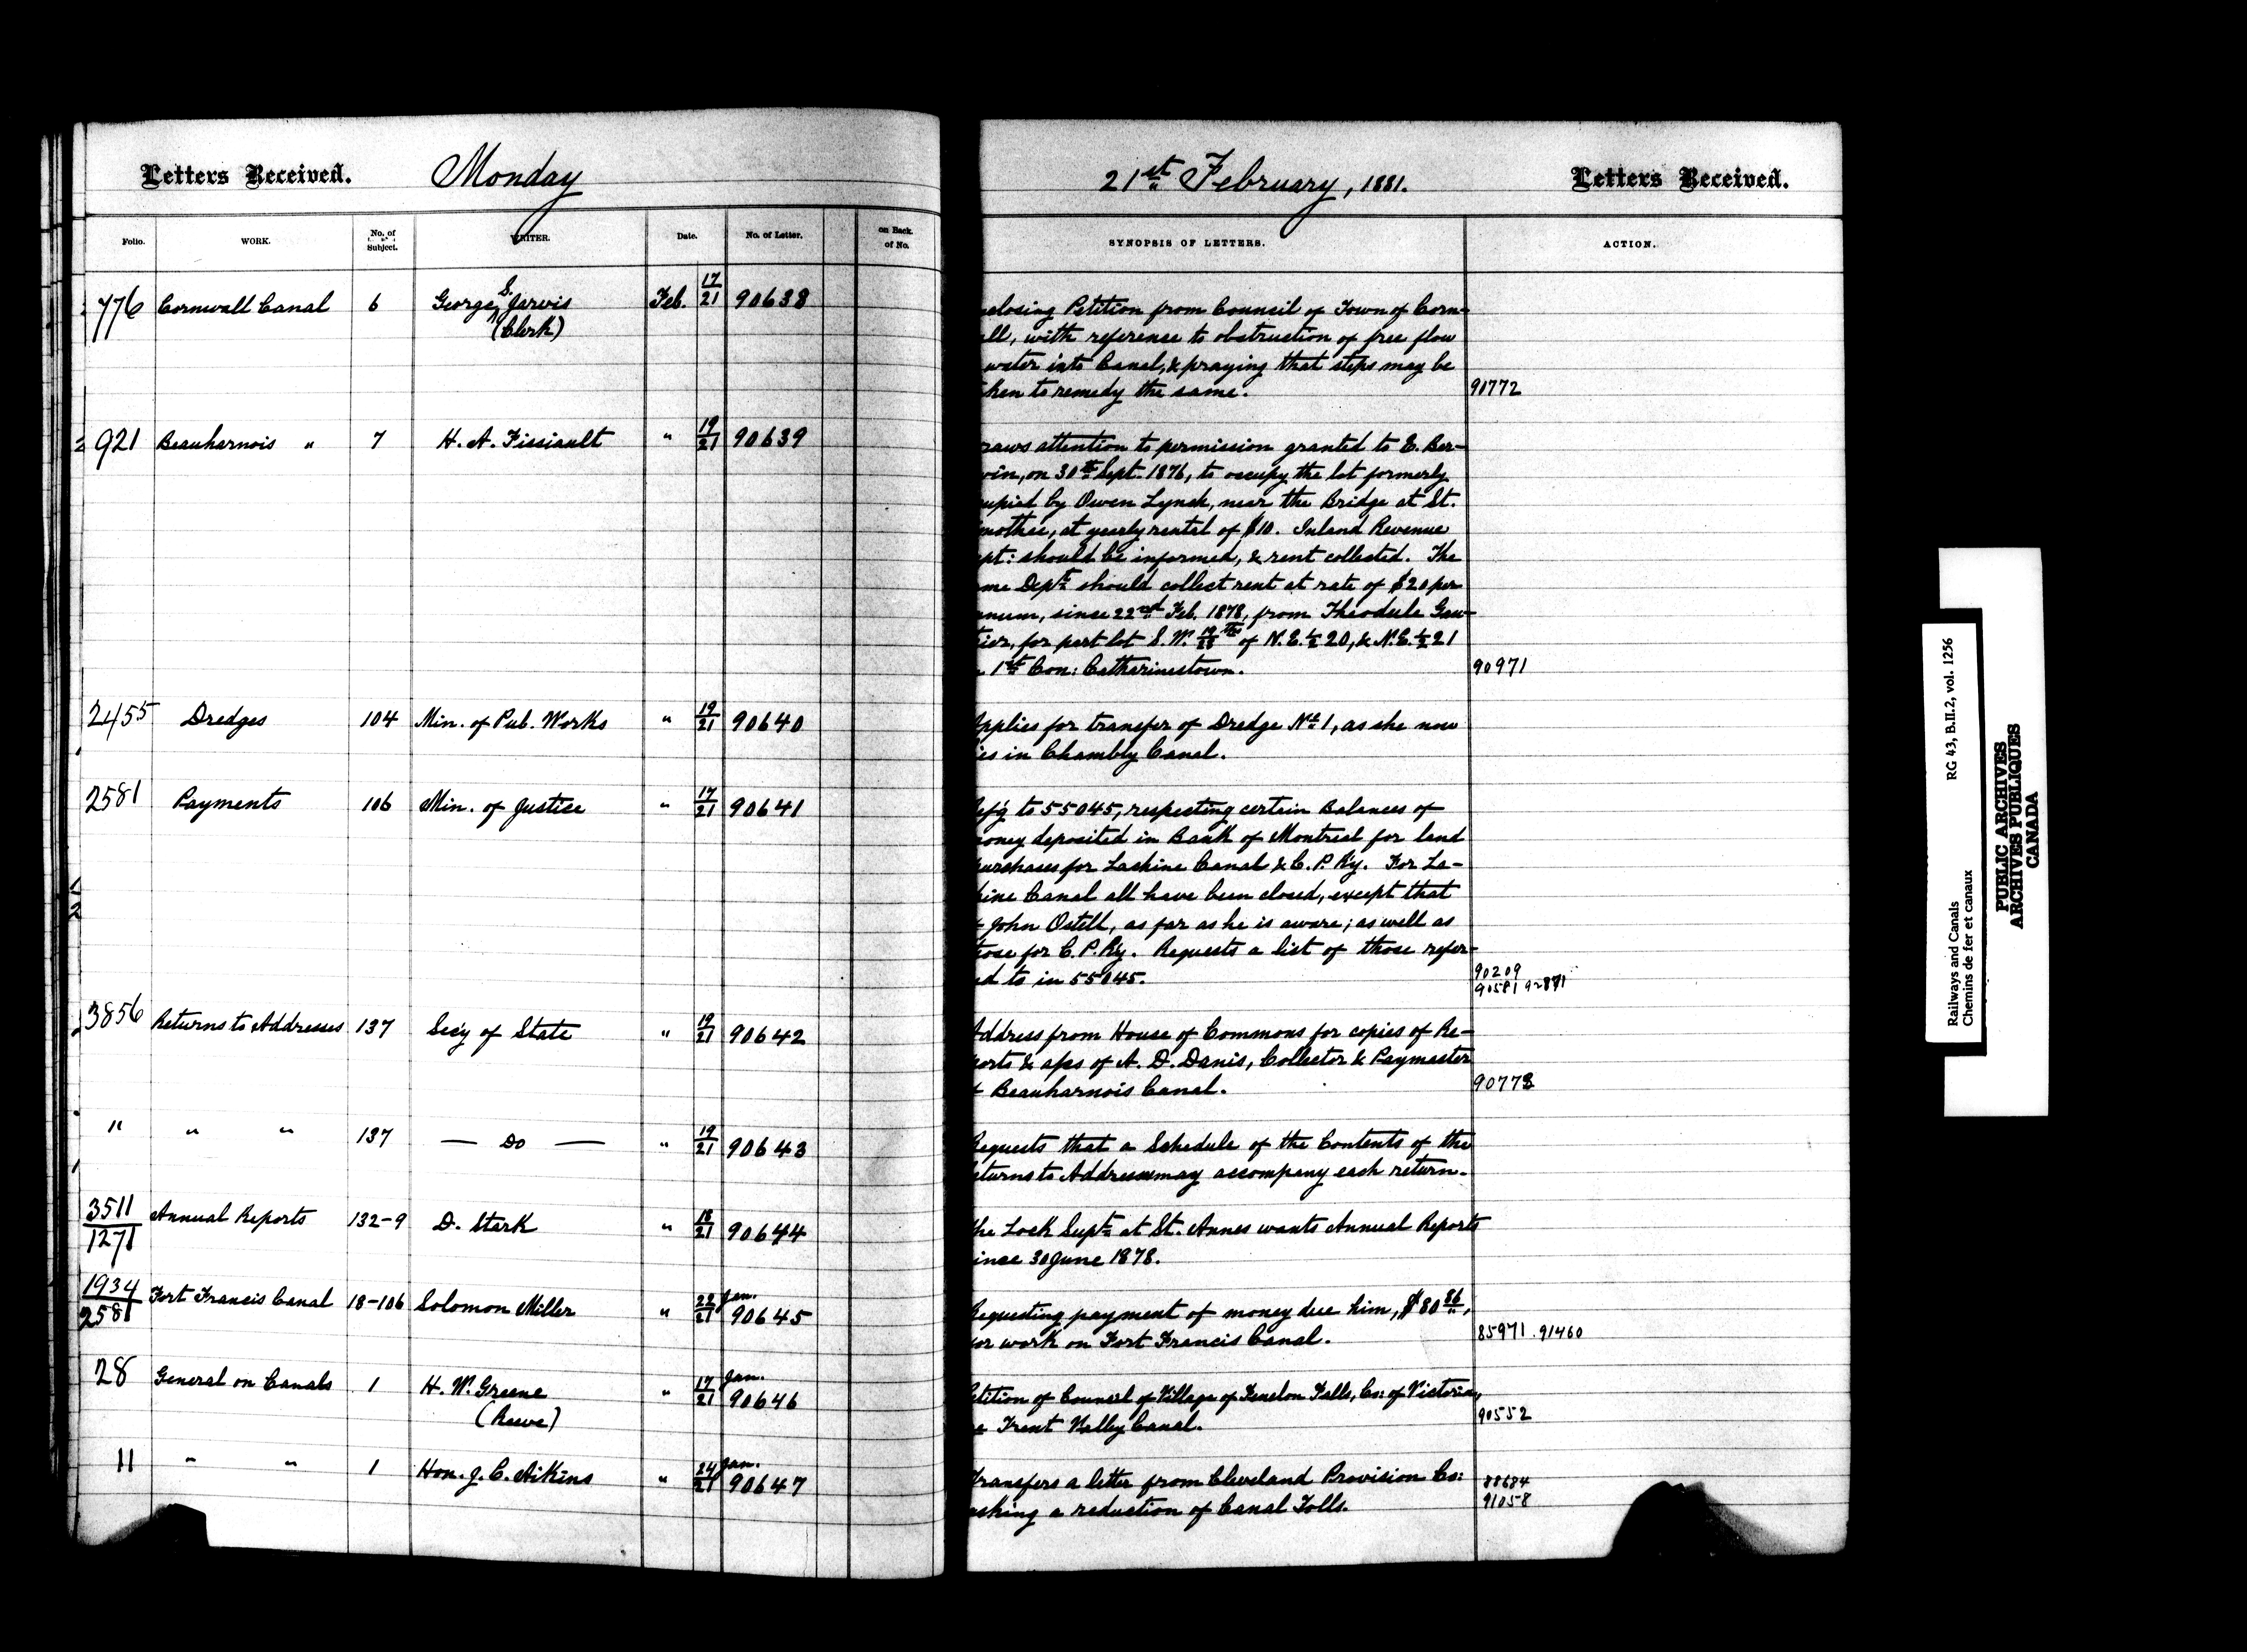 Letters Received. Monday
Folio. WORK. No. of Subject. WRITER. Date. No. of Letter. on Back. of No.
776 Cornwall Canal 6 George S. Jarvis Feb. 17/21 90638
(Clerk)
921 Beauharnois " 7 H. A. Fissiault " 19/21 90639
2455 Dredges 104 Min. of Pub. Works " 19/21 90640
2581 Payments 106 Min. of Justice " 17/21 90641
3856 Returns to Addresses 137 Secy of State " 19/21 90642
" " " 137 — Do — " 19/21 90643
3511/1271 Annual Reports 132-9 D. Stark " 18/21 90644
1934/2581 Fort Francis Canal 18-106 Solomon Miller " 22/21 Jan. 90645
28 General on Canals 1 H. W. Greene " 17/21 Jan. 90646
(Reeve)
11 " " 1 Hon. J. C. Aikins " 24/21 Jan. 90647
21st February, 1881. Letters Received.
SYNOPSIS OF LETTERS. ACTION.
closing Petition from Council of Town of Corn-
all, with reference to obstruction of free flow
water into Canal, & praying that steps may be
ken to remedy the same. 90772
raws attention to permission granted to E. Ber-
vin, on 30th Sept. 1876, to occupy the lot formerly
upied by Owen Lynch, near the Bridge at St.
mothee, at yearly rental of $10. Inland Revenue
pt: should be informed, & rent collected. The
me Dept should collect rent at rate of $20 per
nnum, since 22nd Feb. 1878, from Theodule Gau-
tier, for part lot S. W. of N. E. ½ 20, & N. E. ½ 21
1st Con: Catharinestown. 90971
pplies for transfer of Dredge No 1, as she now
ies in Chambly Canal.
ef'g to 55045, respecting certain Balances of
oney deposited in Bank of Montreal for land
urchases for Lachine Canal & C. P. R'y. For La-
hine Canal all have been closed, except that
John Ostell, as far as he is aware; as well as
hose for C. P. Ry. Requests a list of those refer-
ed to in 55045. 90209
90581 92871
ddress from House of Commons for copies of Re-
ports & a/cs of A. D. Danis, Collector & Paymaster
Beauharnois Canal. 90773
equests that a Schedule of the Contents of the
eturns to Addresses may accompany each return.
he Lock Supt at St. Annes wants Annual Reports
ince 30 June 1878.
equesting payment of money due him, $80 86,
or work on Fort Francis Canal. 85971. 91460
etition of Council of Village of Fenelon Falls, Co: of Victoria,
e Trent Valley Canal. 90552
ransfers a letter from Cleveland Provision Co: 88684
asking a reduction of Canal Tolls. 91058
Railways and Canals RG 43, B.II.2, vol. 1256
Chemins de fer et canaux
PUBLIC ARCHIVES
ARCHIVES PUBLIQUES
CANADA